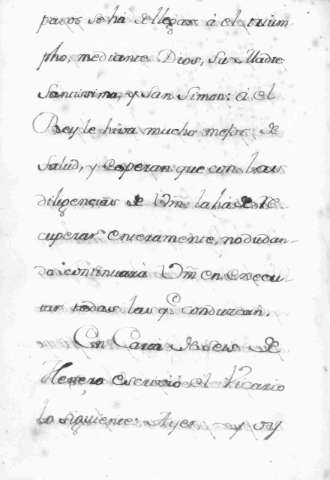 pasos se ha de llegar à el trium
pho, mediante Dios, su Madre
Santissima, y San Simon: a el
Rey le hira mucho mejor de
Salud, y esperan que con las
diligencias de Vm. la ha de re
cuperar enteramente, no dudan-
do continuará Vm en execu-
tar todas las q.e conduzcan.
Con Carta de seis de
Henero escrivió el Vicario
lo siguiente: Ayer y oy